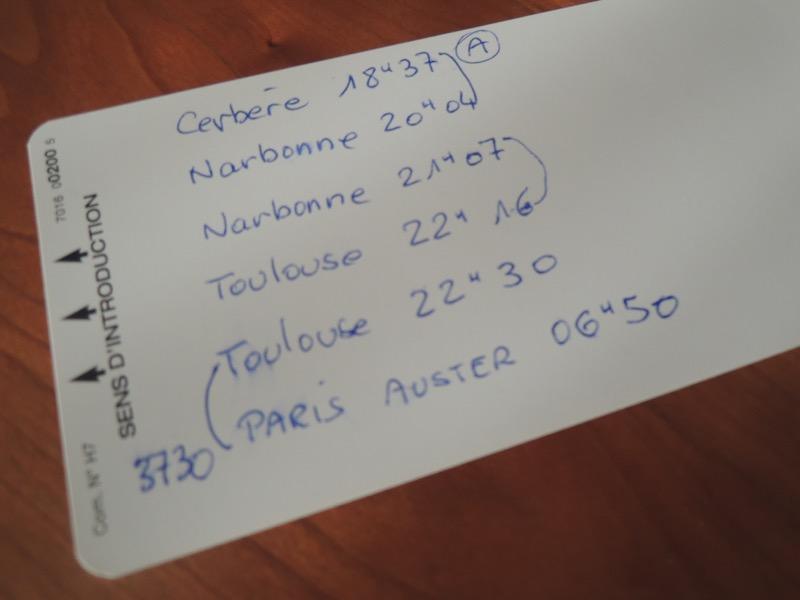 Cerbère 18H37 A
Narbonne 20H04
Narbonne 21H07
Toulouse 22H16
Toulouse 22H30
PARIS AUSTER 06H50
3730
7016 00200 5
SENS D'INTRODUCTION
Com. N° H7